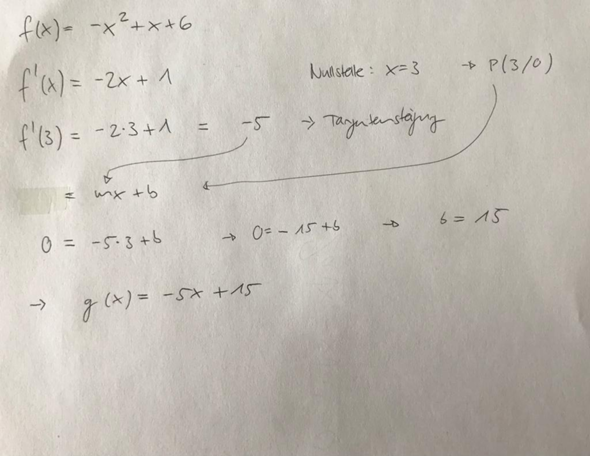 f(x) = -x² + x + 6
f'(x) = -2x + 1
Nullstelle: x=3 → P(3/0)
f'(3) = -2·3+1 = -5 → Tangentensteigung
= mx + b
0 = -5·3+b → 0=-15+b → b = 15
→ g(x) = -5x + 15